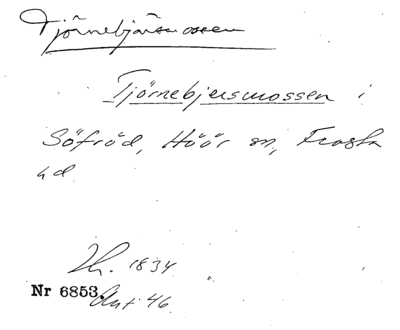 Tjörnebjärsmossen
Tjörnebjersmossen i
Söfröd, Höör sn, Frosta
hd.
1834
Nr 6853. 46